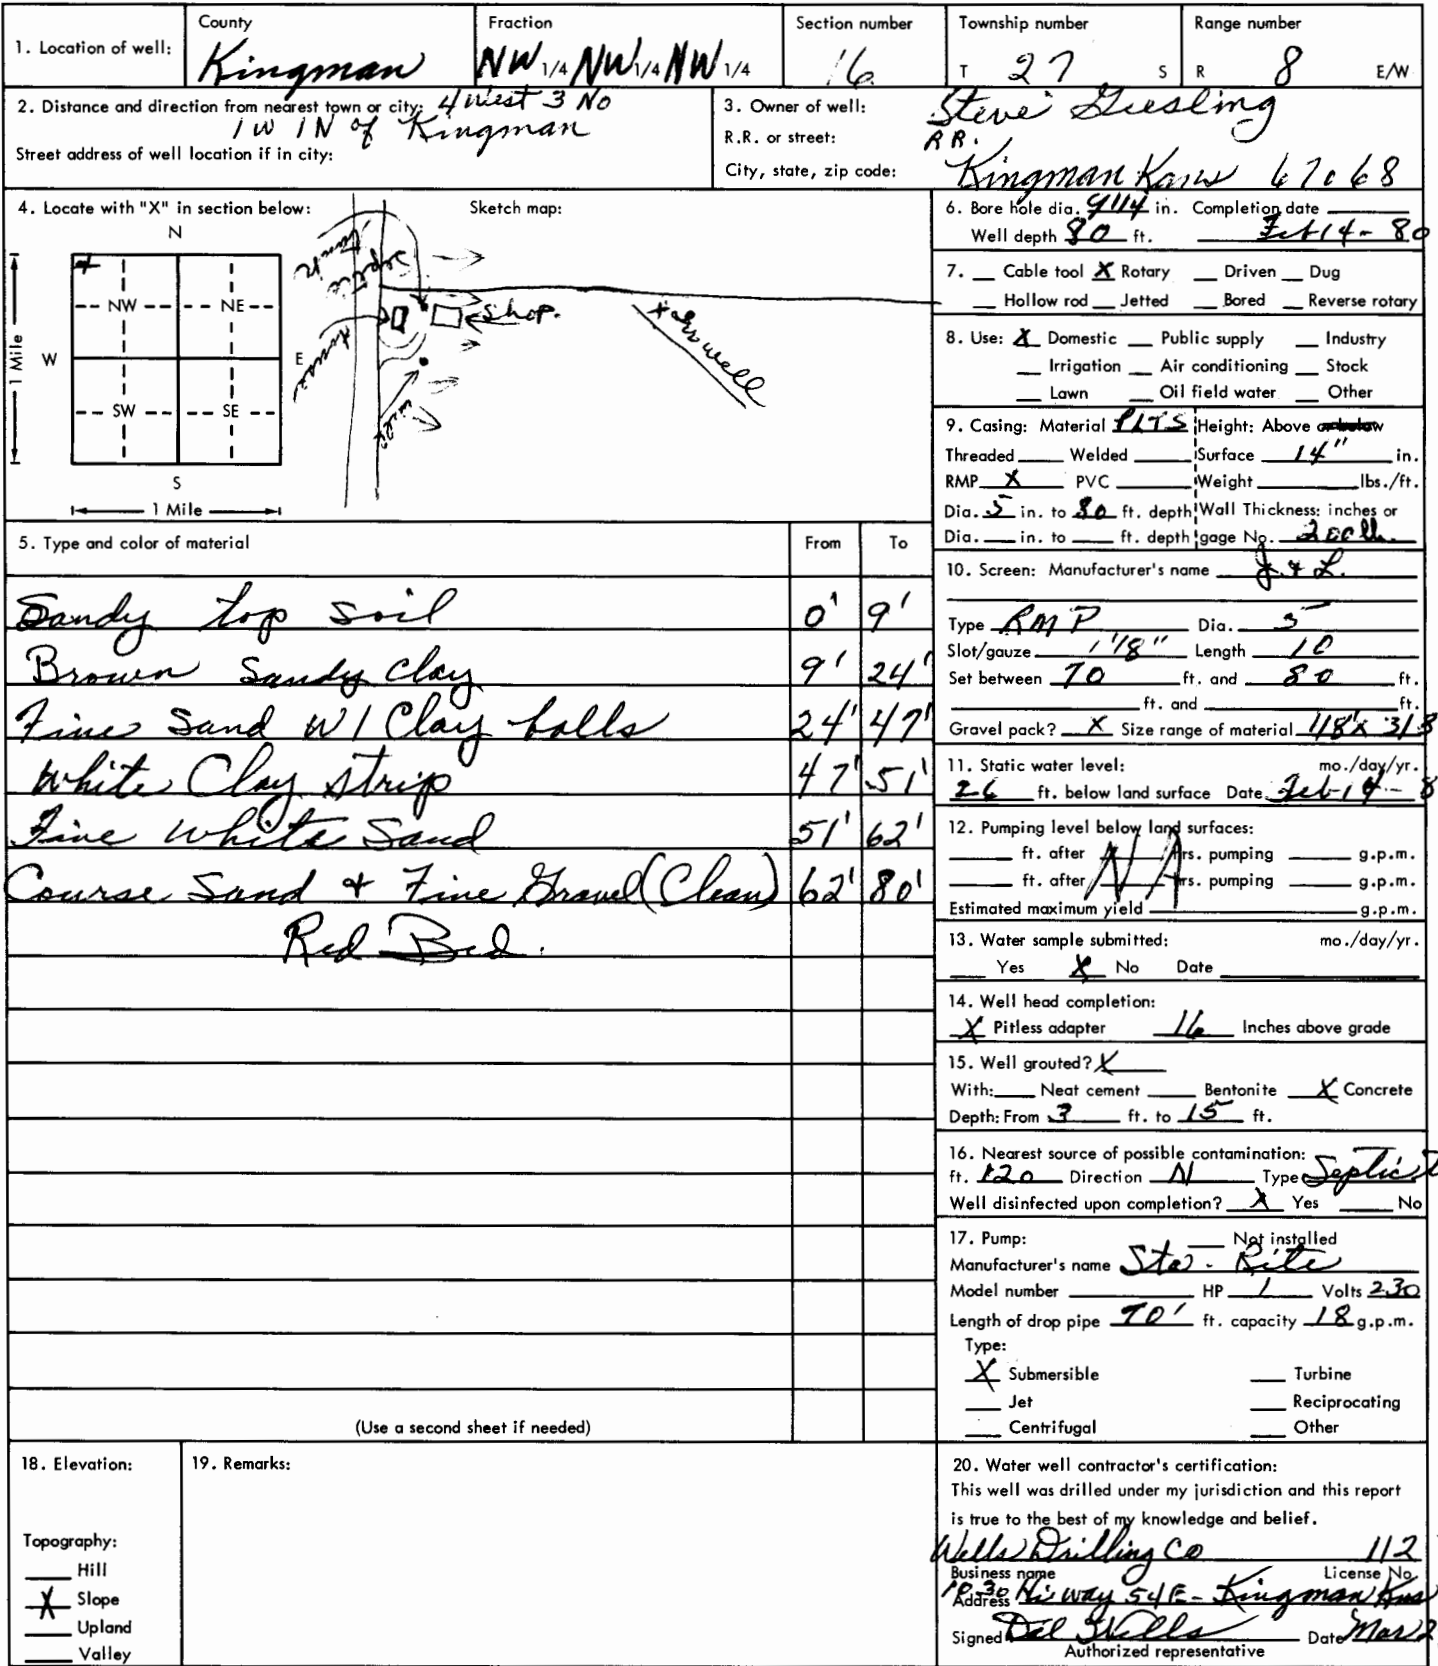 1. Location of well:
County
Kingman
Fraction
NW 1/4 NW 1/4 NW 1/4
Section number
16
Township number
T 27 S
Range number
R 8 E/W
2. Distance and direction from nearest town or city: 4 West 3 No
1 W 1 N of Kingman
Street address of well location if in city:
3. Owner of well: Steve Giesling
R.R. or street: RR.
City, state, zip code: Kingman Kans 67068
4. Locate with "X" in section below:
N
NW NE
W E
SW SE
S
1 Mile
1 Mile
Sketch map:
Septic
Tank
House
Shop.
Well
Irr well
5. Type and color of material From To
Sandy top soil 0' 9'
Brown Sandy Clay 9' 24'
Fine Sand W/ Clay balls 24' 47'
White Clay strip 47' 51'
Fine White Sand 51' 62'
Course Sand & Fine Gravel (Clean) 62' 80'
Red Bed.
(Use a second sheet if needed)
6. Bore hole dia. in. Completion date
Well depth 80 ft. Feb 14 - 80
7. Cable tool X Rotary Driven Dug
Hollow rod Jetted Bored Reverse rotary
8. Use: X Domestic Public supply Industry
Irrigation Air conditioning Stock
Lawn Oil field water Other
9. Casing: Material PLTS Height: Above or below
Threaded Welded Surface 14" in.
RMP X PVC Weight lbs./ft.
Dia. 5 in. to 80 ft. depth Wall Thickness: inches or
Dia. in. to ft. depth gage No. 200 lb.
10. Screen: Manufacturer's name J. & L.
Type RMP Dia. 5
Slot/gauze 1/8" Length 10
Set between 70 ft. and 80 ft.
ft. and ft.
Gravel pack? X Size range of material 1/8 x 3/8
11. Static water level: mo./day/yr.
26 ft. below land surface Date Feb-14-8
12. Pumping level below land surfaces:
ft. after NA hrs. pumping g.p.m.
ft. after hrs. pumping g.p.m.
Estimated maximum yield g.p.m.
13. Water sample submitted: mo./day/yr.
Yes X No Date
14. Well head completion:
X Pitless adapter 16 Inches above grade
15. Well grouted? X
With: Neat cement Bentonite X Concrete
Depth: From 3 ft. to 15 ft.
16. Nearest source of possible contamination:
ft. 120 Direction N Type Septic T
Well disinfected upon completion? X Yes No
17. Pump: Not installed
Manufacturer's name Sta-Rite
Model number HP 1 Volts 230
Length of drop pipe 70' ft. capacity 18 g.p.m.
Type:
X Submersible Turbine
Jet Reciprocating
Centrifugal Other
18. Elevation:
Topography:
Hill
X Slope
Upland
Valley
19. Remarks:
20. Water well contractor's certification:
This well was drilled under my jurisdiction and this report
is true to the best of my knowledge and belief.
Wells Drilling Co 112
Business name License No.
Address 1030 Hi way 54 E - Kingman Kns
Signed Wells Date Mar 2
Authorized representative